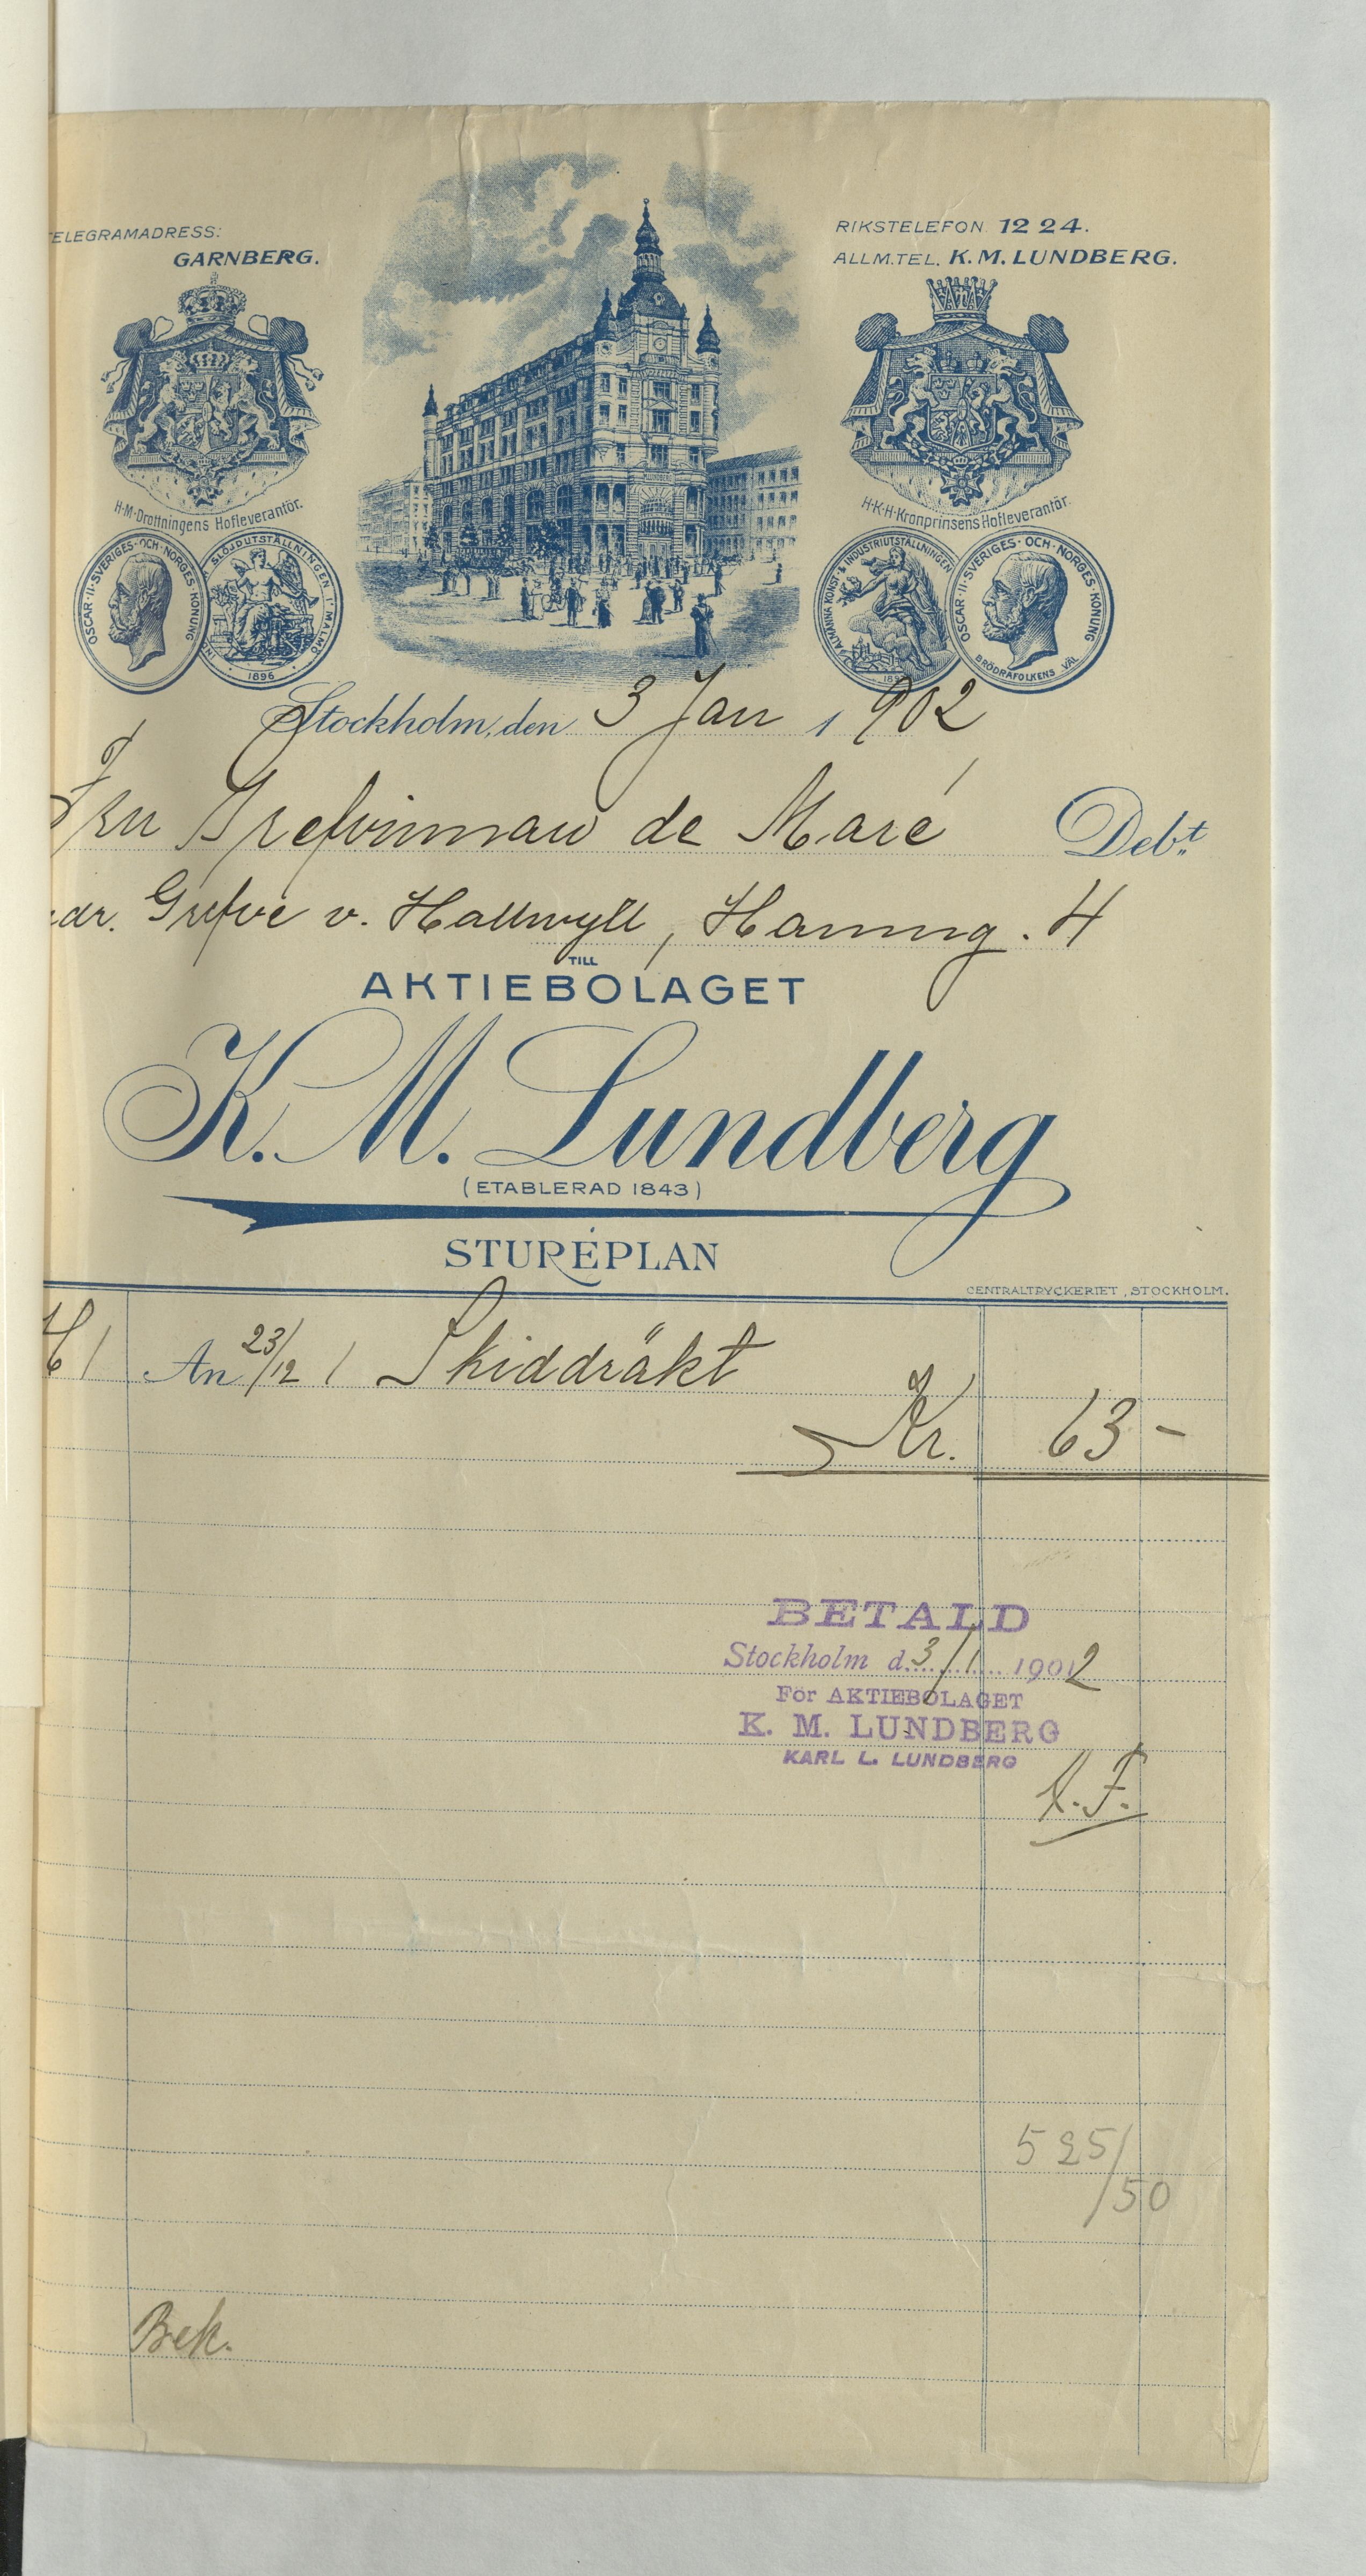 TELEGRAMADRESS:
GARNBERG.
RIKSTELEFON 1224.
ALLM.TEL. K. M. LUNDBERG.
H·M·Drottningens Hofleverantör.
H·K·H·Kronprinsens Hofleverantör.
OSCAR·II·SVERIGES·OCH·NORGES·KONUNG
SLÖJDUTSTÄLLNINGEN I MALMÖ
1896
ALLMÄNNA KONST & INDUSTRIUTSTÄLLNINGEN
OSCAR·II·SVERIGES·OCH·NORGES·KONUNG
BRÖDRAFOLKENS VÄL
Stockholm, den 3 Jan 1902
Fru Grefvinnan de Maré Deb:t
adr. Grefve v. Hallwyll, Hamng. 4
TILL
AKTIEBOLAGET
K. M. Lundberg
(ETABLERAD 1843)
STUREPLAN
CENTRALTRYCKERIET, STOCKHOLM.
An 23/12 1 Skiddräkt
Kr. 63 –
BETALD
Stockholm d. 3/1 1902
För AKTIEBOLAGET
K. M. LUNDBERG
KARL L. LUNDBERG
A.F.
525/50
Bek.